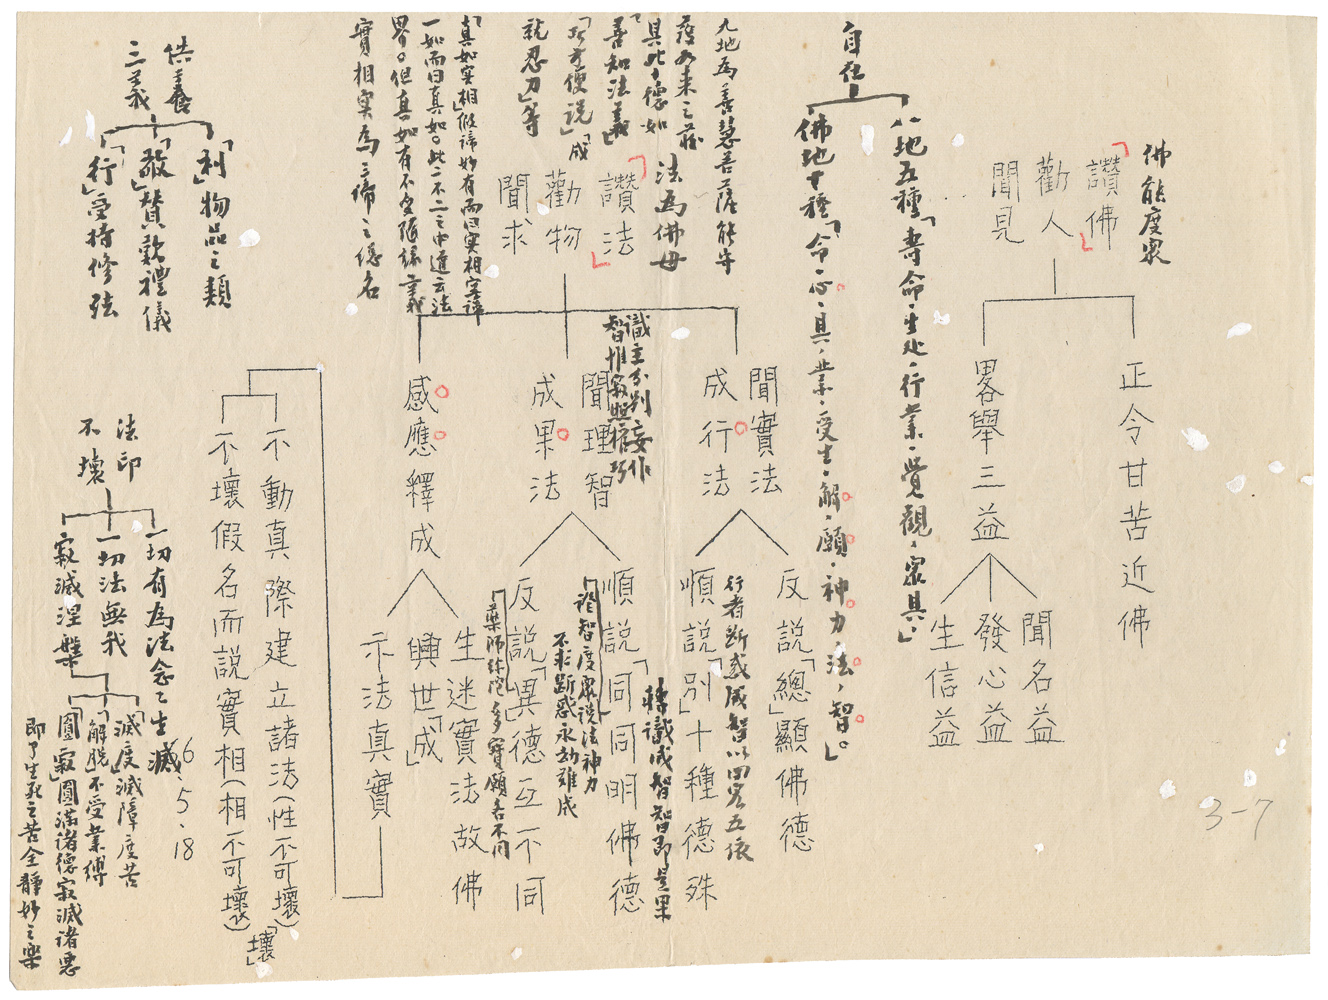 佛能度眾
「讚佛」
勸人
聞見
正令甘苦近佛
畧舉三益
聞名益
發心益
生信益
自在
八地五種「壽命、生处、行業、覺觀、眾具、」
佛地十種「命、心、具、業、受生、解、願、神力、法、智。」
九地為善慧菩薩能守
護如來之藏
具此十德如
「善知法義」
「巧方便說」「成
就忍力」等
法為佛母
「讚法」
勸物
聞求
「真如实相」假諦妙有而曰实相空諦
一如而曰真如。此二不二之中道云法
界。但真如有不变隨緣義
實相实為三諦之總名
聞實法
成行法
反說「總」顯佛德
順說「別」十種德殊
行者断惑成智以四字五依
識主分别妄作
智惟寂照權巧
聞理智
成果法
順說「同」同明佛德
反說「異」德互不同
轉識成智智即是果
「證智度眾說法神力
不求断惑永劫難成
「藥師弥陀多寶願各不同
感應釋成
生迷實法故佛
興世「成」
示法真實
不動真際建立諸法(性不可壞)
不壞假名而說實相(相不可壞)
「壞」
供養
三義
「利」物品之類
「敬」贊歎禮儀
「行」受持修法
法印
不壞
一切有為法念念生滅
一切法無我
寂滅涅槃
「滅度」滅障度苦
「解脫」不受業縛
「圓寂」圓滿诸德寂滅诸惡
即了生死之苦全靜妙之樂
6、5、18
3-7